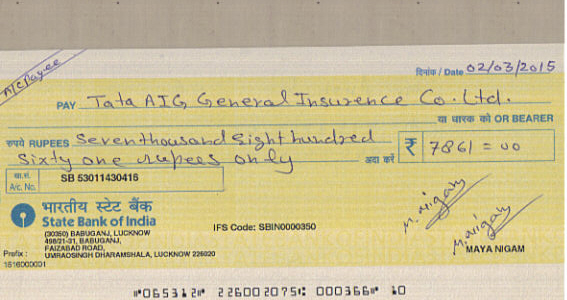 A/C Payee
दिनांक / Date 02/03/2015
PAY Tata AIG General Insurence Co. Ltd.
या धारक को OR BEARER
रुपये RUPEES Seven thousand Eight hundred
Sixty one rupees only अदा करें ₹ 7861 = 00
खा.सं. A/c. No. SB 53011430416
भारतीय स्टेट बैंक
State Bank of India
(00350) BABUGANJ, LUCKNOW
498/21-31, BABUGANJ,
FAIZABAD ROAD,
UMRAOSINGH DHARAMSHALA, LUCKNOW 226020
IFS Code: SBIN0000350
M. Nigam
M. Nigam
MAYA NIGAM
Prefix :
1616000001
⑈065312⑈ 226002075⑆ 000366⑈ 10